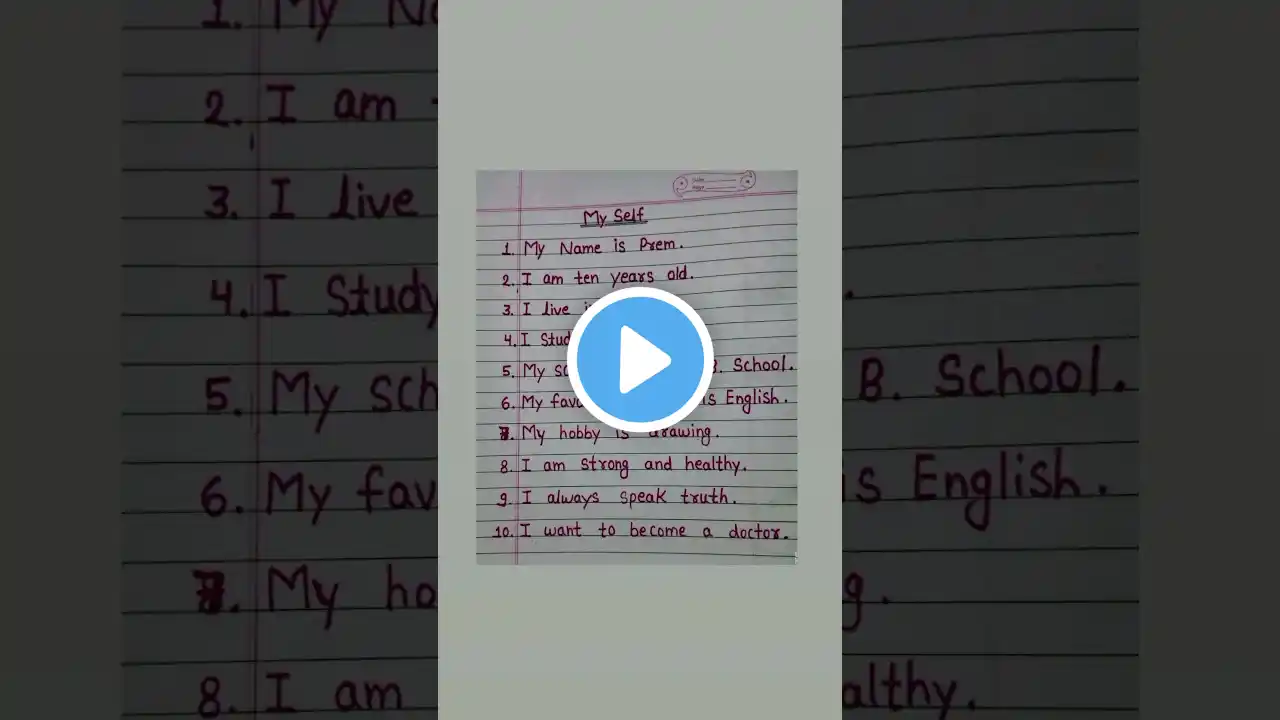 My Self
1. My Name is Prem.
2. I am ten years old.
3. I live
4. I Study
5. My B. School.
6. My is English.
7. My hobby is drawing.
8. I am strong and healthy.
9. I always speak truth.
10. I want to become a doctor.